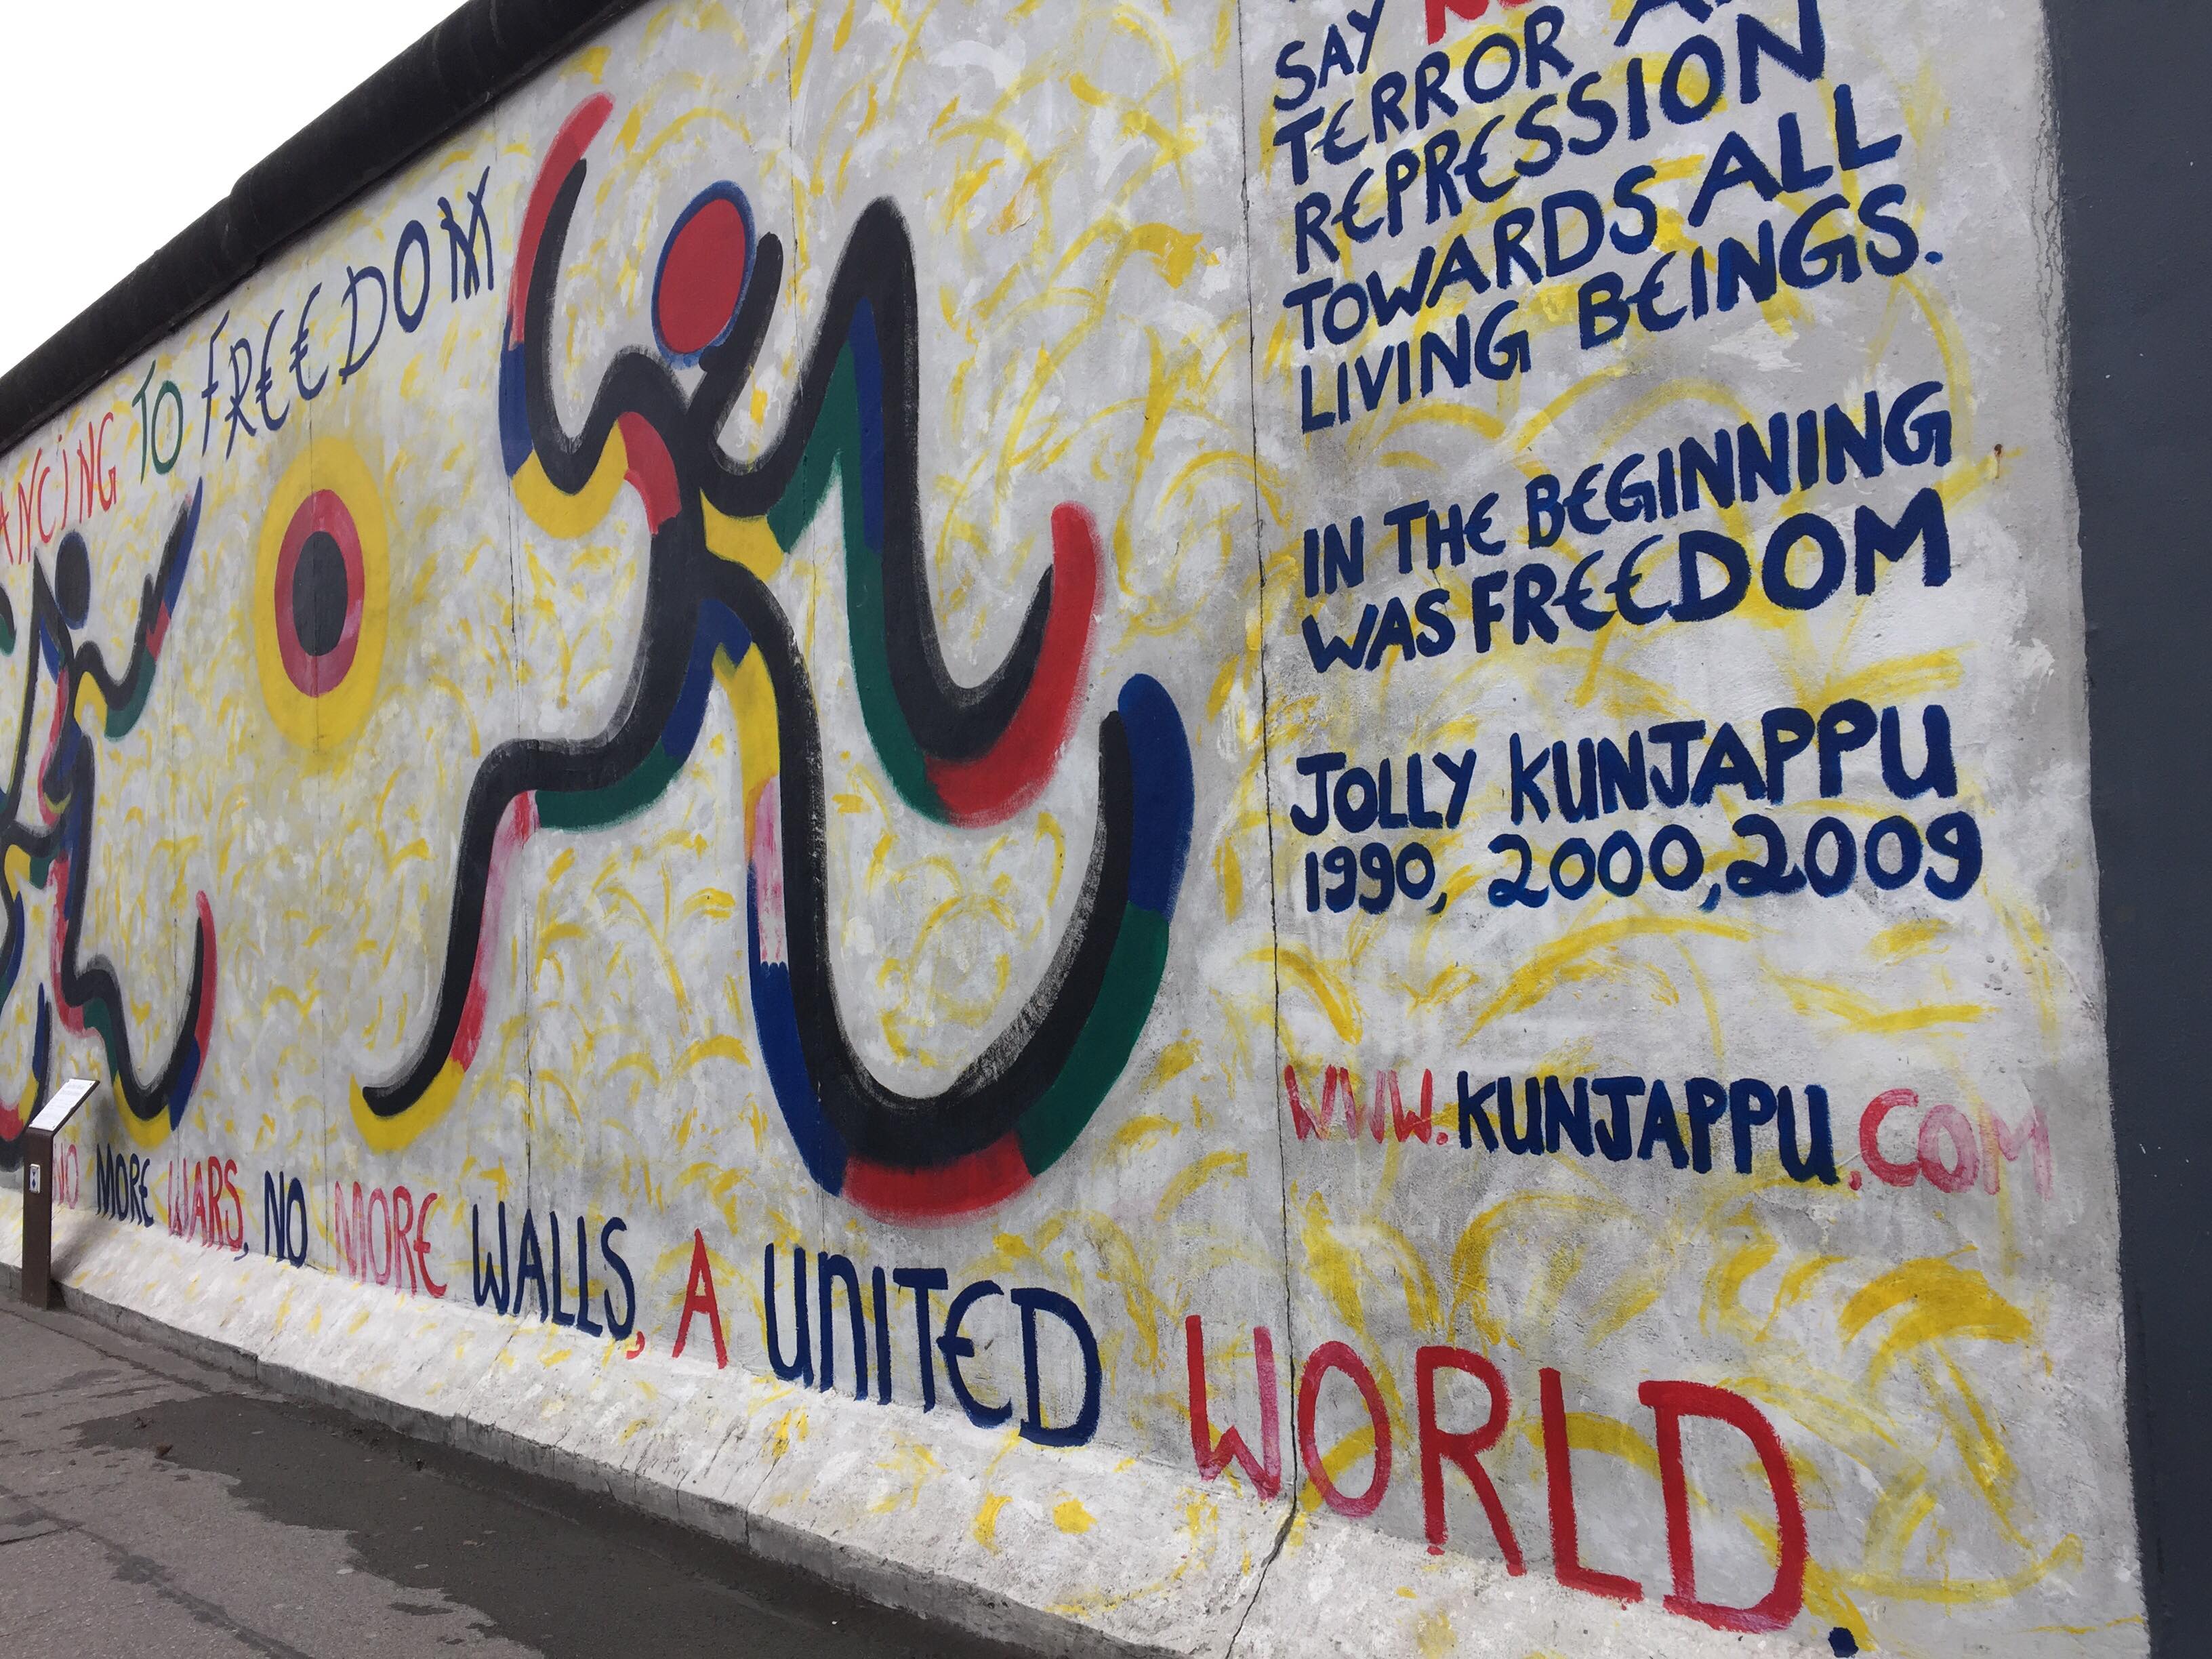 ANCING TO FREEDOM
SAY
TERROR
REPRESSION
TOWARDS ALL
LIVING BEINGS.
IN THE BEGINNING
WAS FREEDOM
JOLLY KUNJAPPU
1990, 2000, 2009
WWW.KUNJAPPU.COM
NO MORE WARS, NO MORE WALLS, A UNITED WORLD.